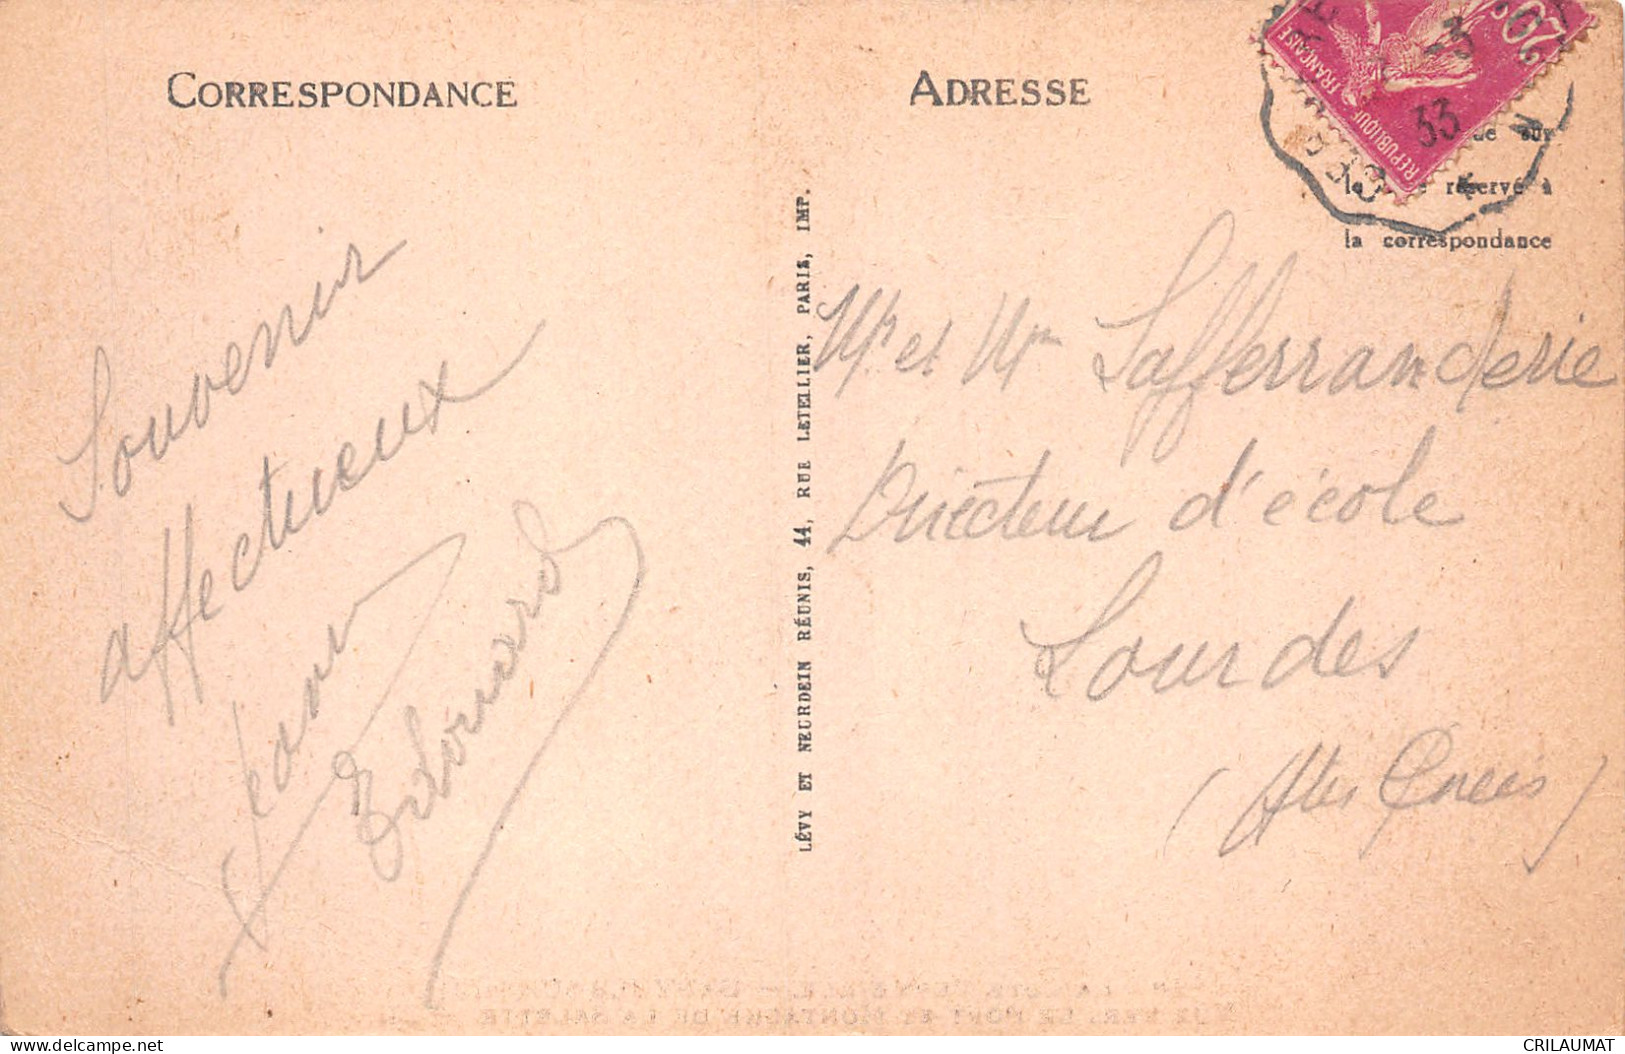 CORRESPONDANCE
ADRESSE
20c
REPUBLIQUE FRANÇAISE
-3
33
de sur
réservé à
la correspondance
Souvenir
affectueux
Edouard
LÉVY ET NEURDEIN RÉUNIS, 44, RUE LETELLIER, PARIS, IMP.
Mr et Mme Lafferranderie
Directeur d'école
Lourdes
(Htes Pnéés)
CRILAUMAT
delcampe.net